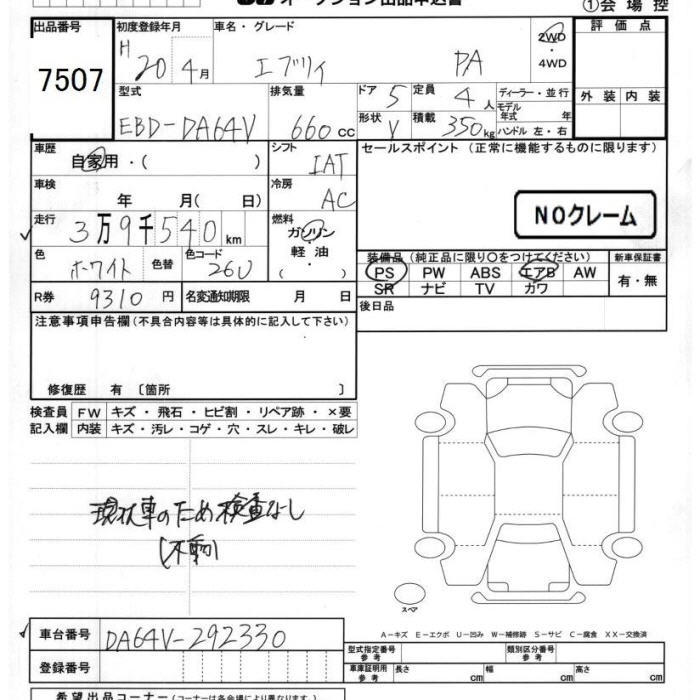 オークション出品申込書
①会場控
出品番号
7507
初度登録年月
H 20 4月
車名・グレード
エブリイ PA
2WD
・
4WD
評価点
外装 内装
型式
EBD-DA64V
排気量
660cc
ドア 5
定員 4人
形状 V
積載 350kg
ディーラー・並行
モデル年式 年
ハンドル 左・右
車歴
自家用・( )
シフト
IAT
セールスポイント(正常に機能するものに限ります)
NOクレーム
車検
年 月( 日)
冷房
AC
走行
3万9千540km
燃料
ガソリン
・
軽油
( ・ )
色
ホワイト
色替
色コード
26U
装備品(純正品に限り○をつけてください)
PS PW ABS エアB AW
SR ナビ TV カワ
新車保証書
有・無
R券 9310円
名変通知期限 月 日
後日品
注意事項申告欄(不具合内容等は具体的に記入して下さい)
修復歴 有〔箇所 〕
検査員 FW キズ・飛石・ヒビ割・リペア跡・×要
記入欄 内装 キズ・汚レ・コゲ・穴・スレ・キレ・破レ
現状車のため検査なし
(不動)
スペア
A−キズ E−エクボ U−凹み W−補修跡 S−サビ C−腐食 XX−交換済
車台番号 DA64V-292330
登録番号
型式指定番号
参考
類別区分番号
参考
車庫証明用
参考
長さ cm 幅 cm 高さ cm
希望出品コーナー(コーナーは各会場により異なります)